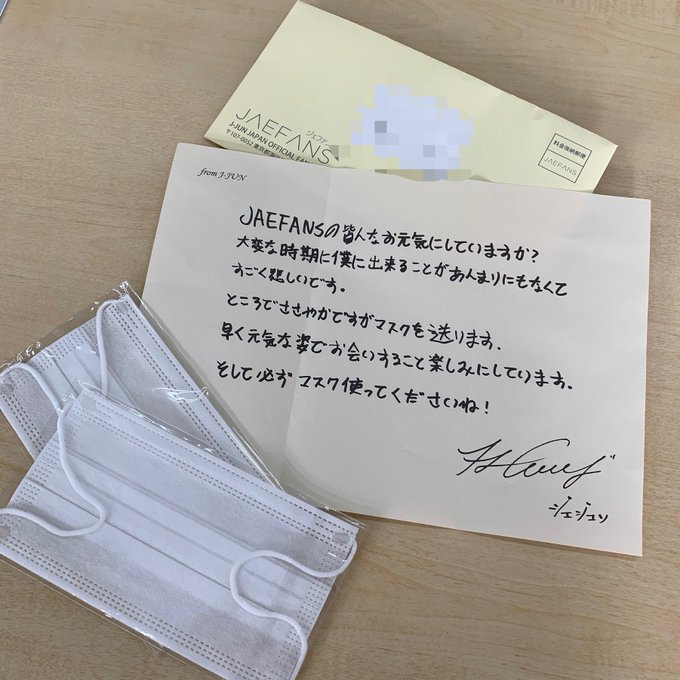 ジェファ
JAEFANS
J-JUN JAPAN OFFICIAL FAN
〒107-0052 東京都港区
料金後納郵便
JAEFANS
from J-JUN
JAEFANSの皆んなお元気にしていますか?
大変な時期に僕に出来ることがあんまりにもなくて
すごく悲しいです。
ところでささやかですがマスクを送ります.
早く元気な姿でお会いすること楽しみにしています.
そして必ずマスク使ってくださいね!
ジェジュン